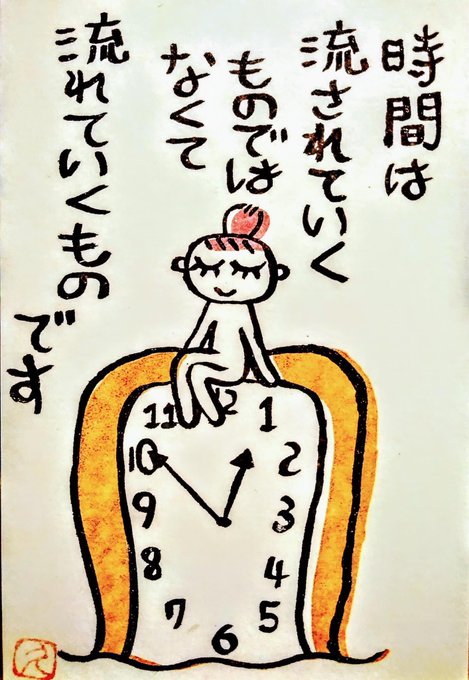 時間は
流されていく
ものでは
なくて
流れていくもの
です
11
12
1
10
2
9
3
8
4
7
5
6